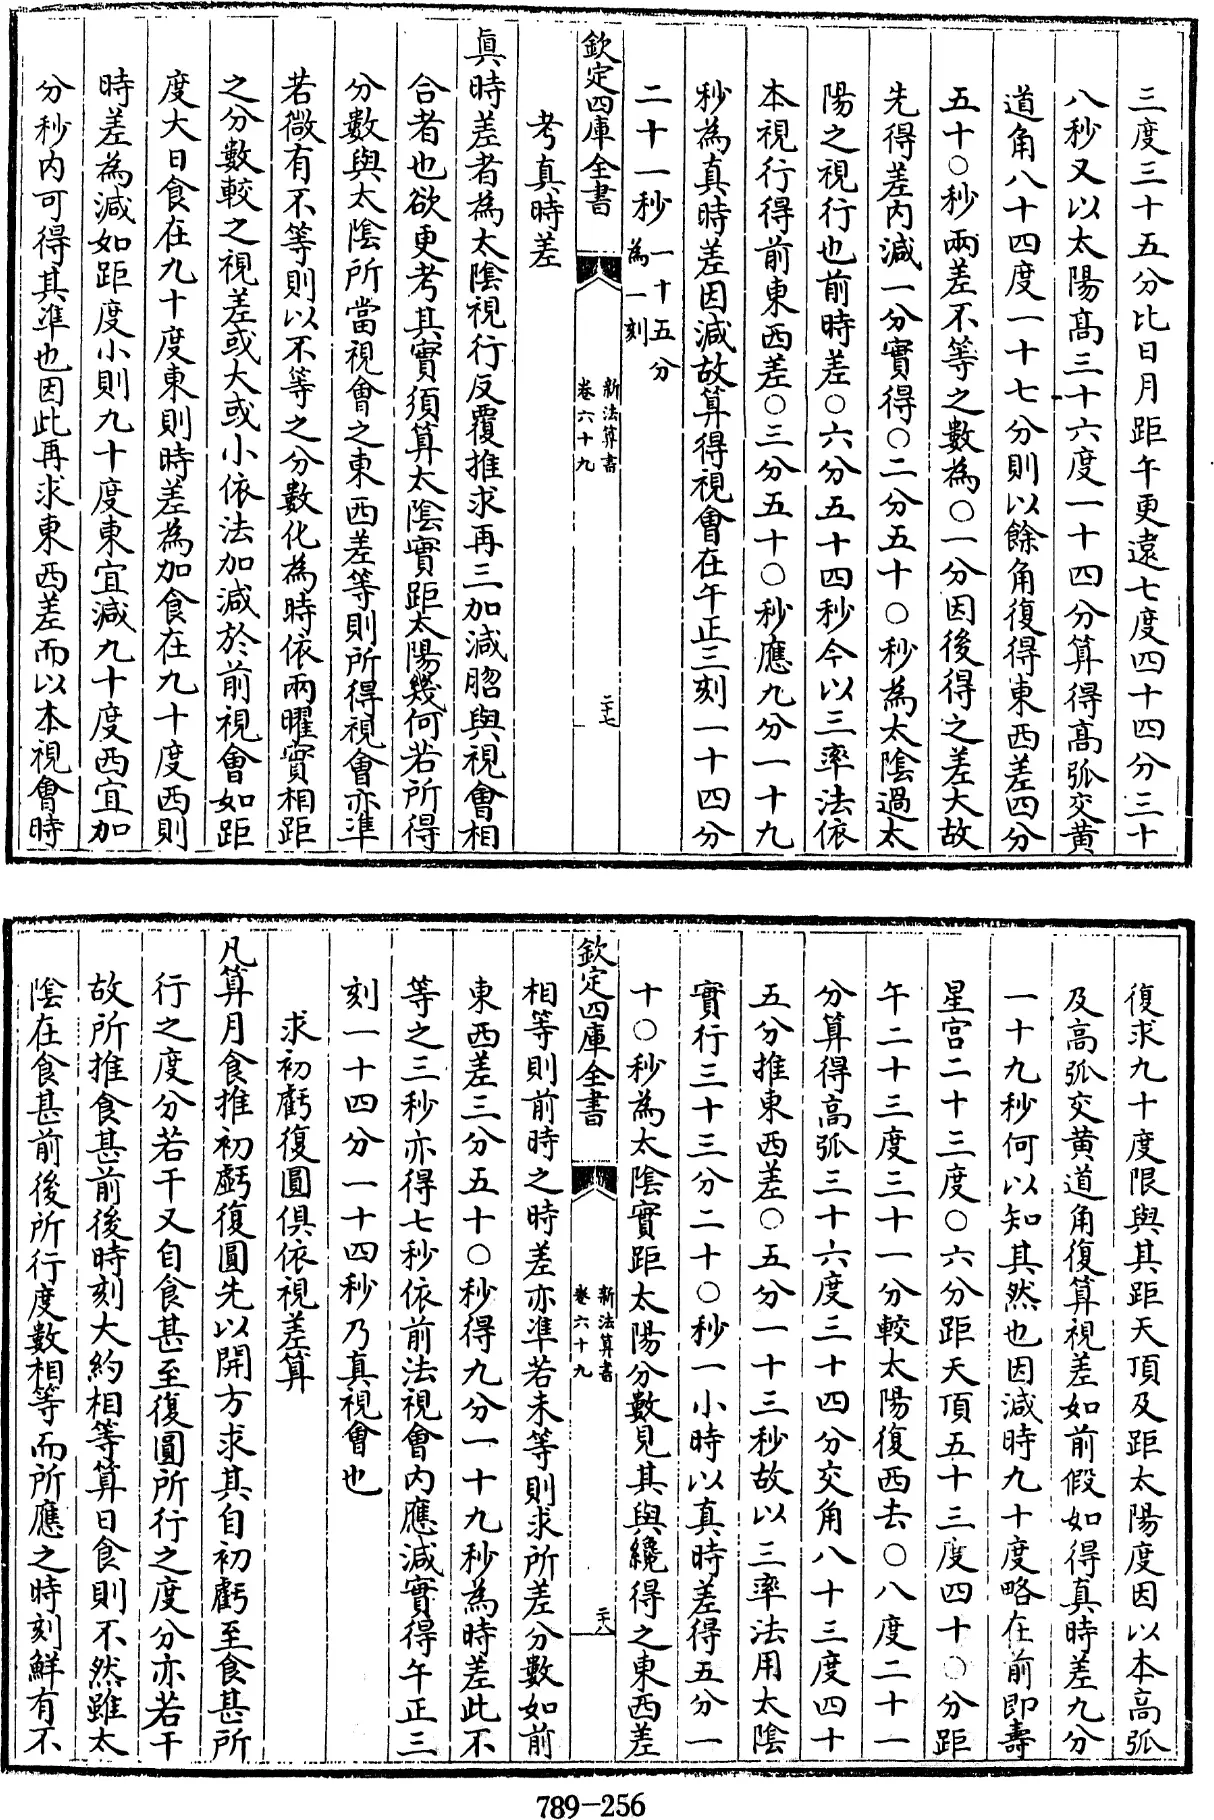 三度三十五分比日月距午更遠七度四十四分三十
八秒又以太陽高三十六度一十四分算得高弧交黃
道角八十四度一十七分則以餘角復得東西差四分
五十〇秒兩差不等之數為〇一分因後得之差大故
先得差內減一分實得〇二分五十〇秒為太陰過太
陽之視行也前時差〇六分五十四秒今以三率法依
本視行得前東西差〇三分五十〇秒應九分一十九
秒為真時差因減故算得視會在午正三刻一十四分
二十一秒一十五分為一刻
欽定四庫全書
新法算書
卷六十九
二十七
考真時差
真時差者為太陰視行反覆推求再三加減脗與視會相
合者也欲更考其實須算太陰實距太陽幾何若所得
分數與太陰所當視會之東西差等則所得視會亦準
若微有不等則以不等之分數化為時依兩曜實相距
之分數較之視差或大或小依法加減於前視會如距
度大日食在九十度東則時差為加食在九十度西則
時差為減如距度小則九十度東宜減九十度西宜加
分秒內可得其準也因此再求東西差而以本視會時
復求九十度限與其距天頂及距太陽度因以本高弧
及高弧交黃道角復算視差如前假如得真時差九分
一十九秒何以知其然也因減時九十度略在前即壽
星宮二十三度〇六分距天頂五十三度四十〇分距
午二十三度三十一分較太陽復西去〇八度二十一
分算得高弧三十六度三十四分交角八十三度四十
五分推東西差〇五分一十三秒故以三率法用太陰
實行三十三分二十〇秒一小時以真時差得五分一
十〇秒為太陰實距太陽分數見其與纔得之東西差
欽定四庫全書
新法算書
卷六十九
二十八
相等則前時之時差亦準若未等則求所差分數如前
東西差三分五十〇秒得九分一十九秒為時差此不
等之三秒亦得七秒依前法視會內應減實得午正三
刻一十四分一十四秒乃真視會也
求初虧復圓俱依視差算
凡算月食推初虧復圓先以開方求其自初虧至食甚所
行之度分若干又自食甚至復圓所行之度分亦若干
故所推食甚前後時刻大約相等算日食則不然雖太
陰在食甚前後所行度數相等而所應之時刻鮮有不
789-256